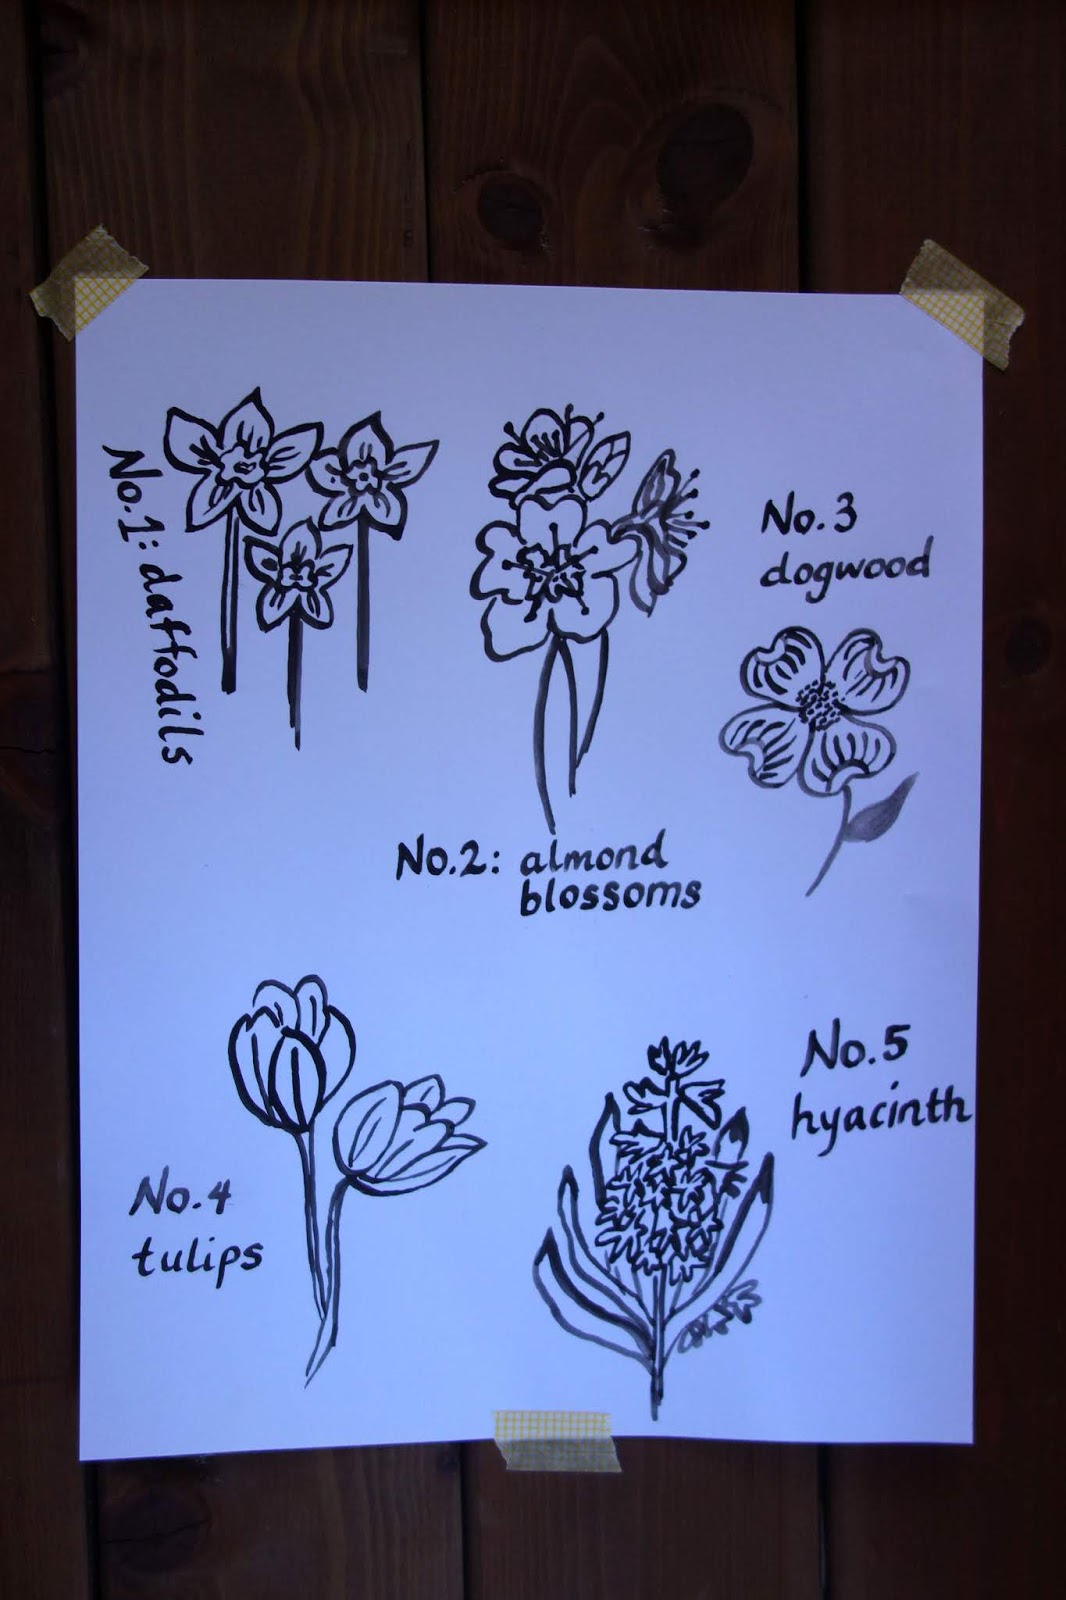 No.1: daffodils
No.2: almond
blossoms
No.3
dogwood
No.4
tulips
No.5
hyacinth